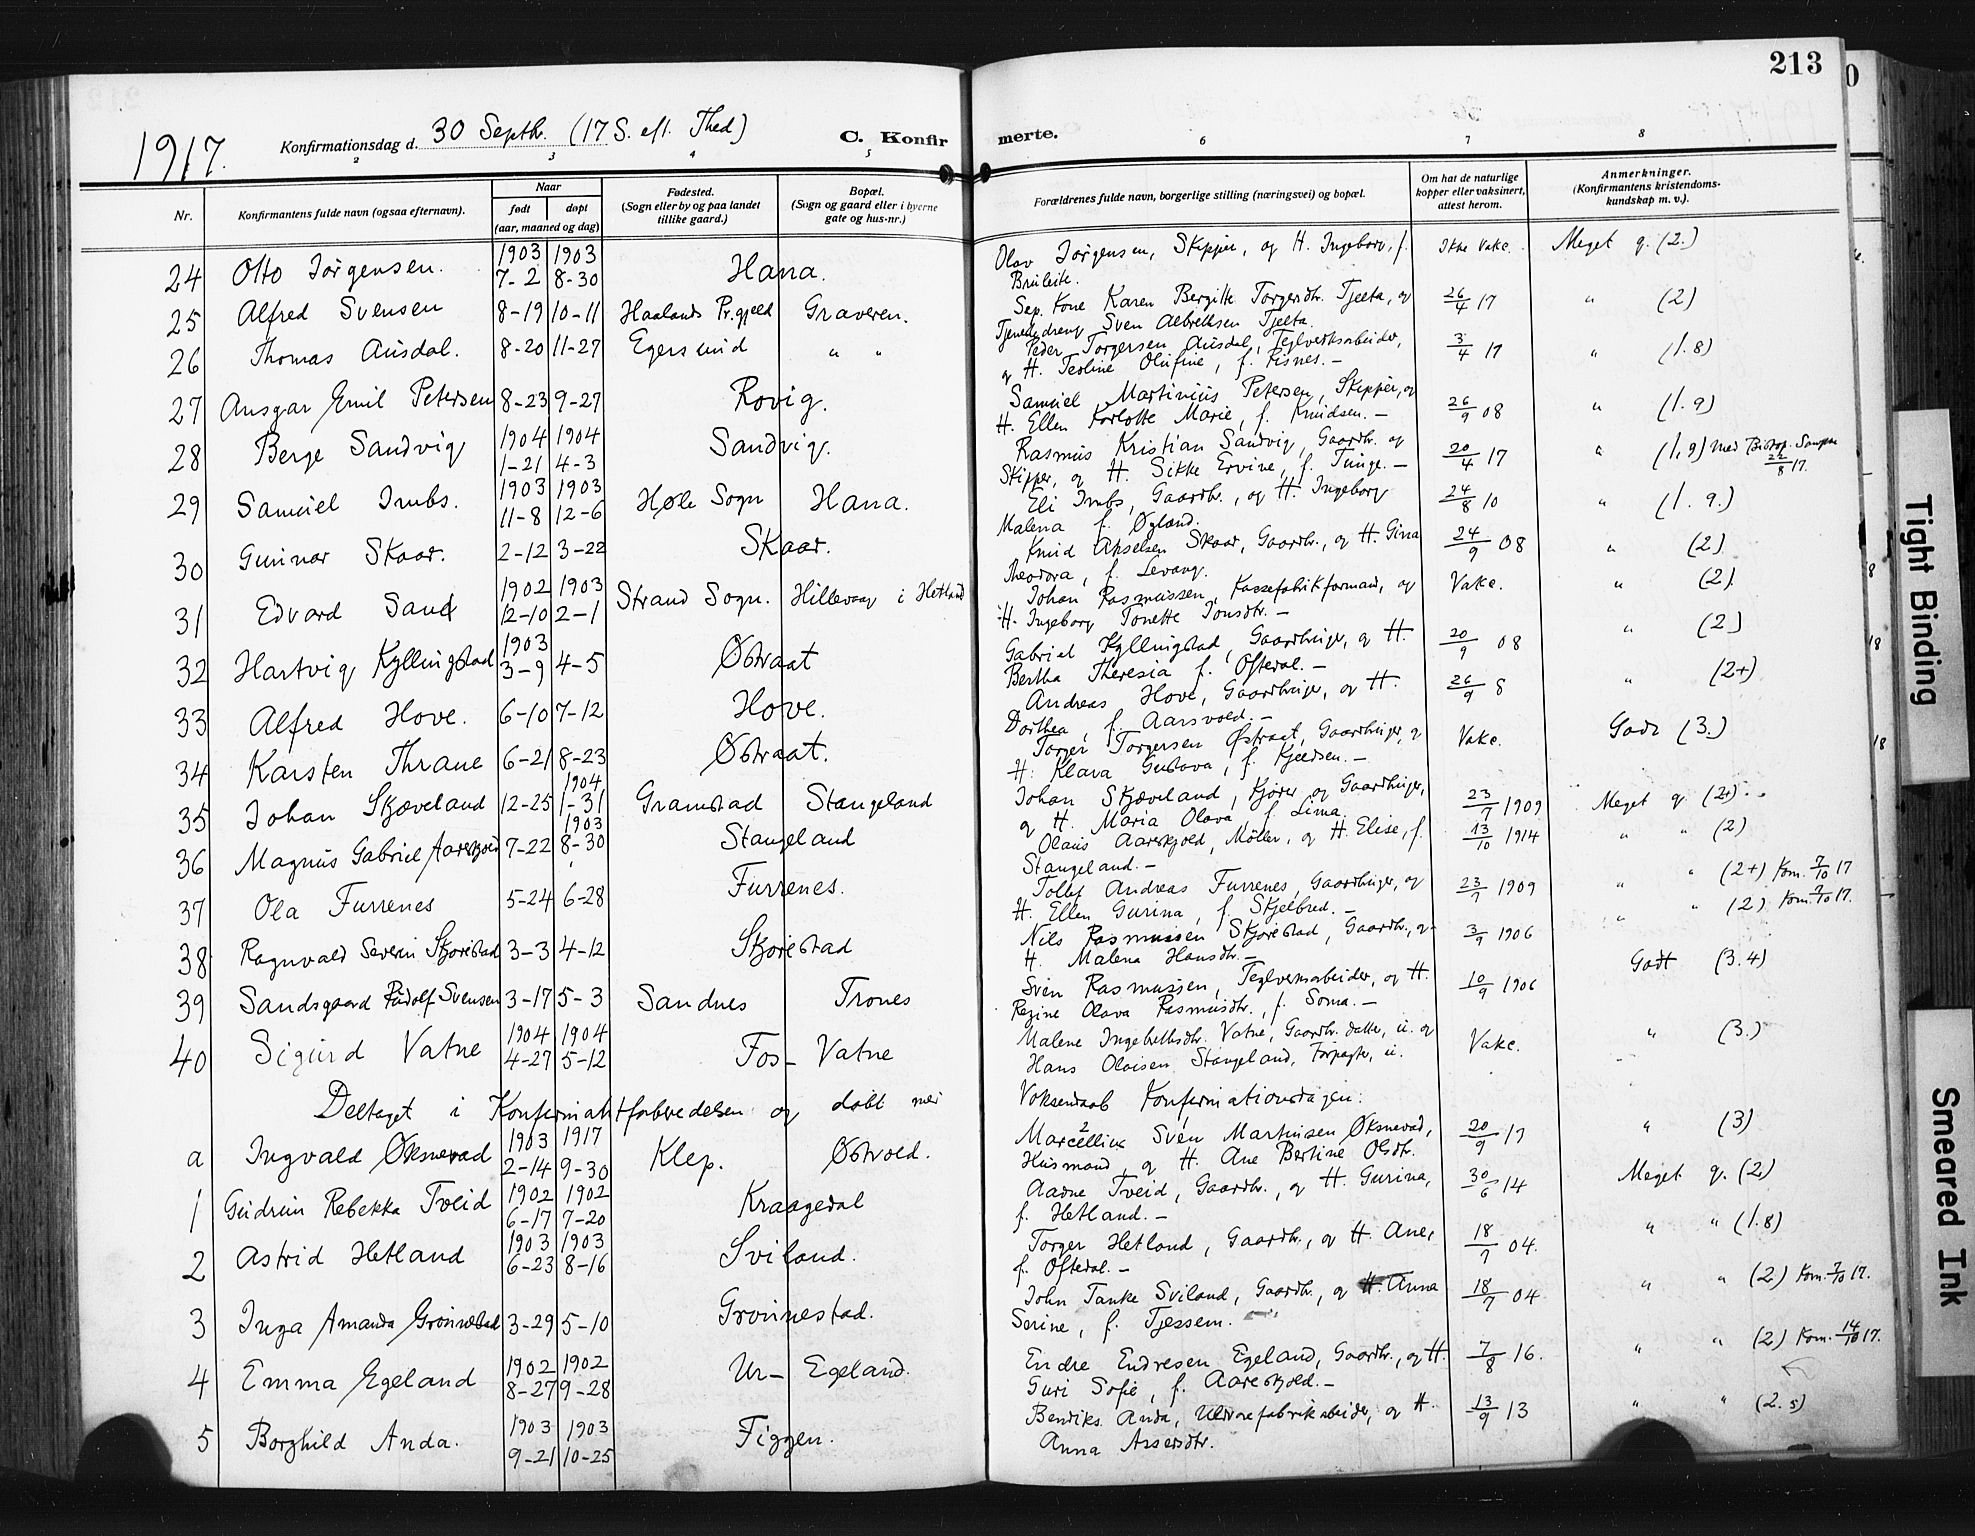 213
1917. Konfirmationsdag d. 30 Septbr. (17 S. eft. Thed) C. Konfir merte.
2 3 4 5 6 7 8
Nr. Konfirmantens fulde navn (ogsaa efternavn). Naar født døpt (aar, maaned og dag) Fødested. (Sogn eller by og paa landet tillike gaard.) Bopæl. (Sogn og gaard eller i byerne gate og hus-nr.) Forældrenes fulde navn, borgerlige stilling (næringsvei) og bopæl. Om hat de naturlige kopper eller vaksinert, attest herom. Anmerkninger. (Konfirmantens kristendoms-kundskap m. v.).
24 Otto Jørgensen. 1903 7-2 1903 8-30 Hana. Olav Jørgensen, Skipper, og H. Ingeborg, f. Ikke Vakc. Meget g. (2.)
25 Alfred Svensen 8-19 10-11 Haalands Pr.gjeld Graveren. Sep. Kone Karen Bergitte Torgersdtr. Tjelta, og Tjenestedreng Sven Albrethsen Tjelta. 26/4 17 " (2)
26 Thomas Ausdal. 8-20 11-27 Egersund " " Peder Torgersen Ausdal, Teglverksarbeider, og H. Teoline Olufine, f. Risnes. - 3/4 17 " (1.8)
27 Ansgar Emil Petersen 8-23 9-27 Rovig. Samuel Martinius Petersen, Skipper, og H. Ellen Karlotte Marie, f. Knudsen. - 26/9 08 " (1.9)
28 Berge Sandvig 1904 1-21 1904 4-3 Sandvig. Rasmus Kristian Sandvig, Gaardbr. og Skipper, og H. Sikke Ervine, f. Tunge. - 20/4 17 " (1,9) Med Bistop. 22/8 17.
29 Samuel Imbs. 1903 11-8 1903 12-6 Høle Sogn Hana. Eli Imbs, Gaardbr., og H. Ingeborg Malena f. Øgland. 24/8 10 " (1.9.)
30 Gunnar Skaar. 2-12 3-22 Skaar. Knud Akselsen Skaar, Gaardbr., og H. Gina Theodora, f. Levang. 24/9 08 " (2)
31 Edvard Sand 1902 12-10 1903 2-1 Strand Sogn. Hillevaag i Hetland Johan Rasmussen, Kassefabrikformand, og H. Ingeborg Tonette Tonsdtr. - Vakc. " (2)
32 Hartvig Kyllingstad 1903 3-9 4-5 Østraat Gabriel Kyllingstad, Gaardbruger, og H. Bertha Theresia f. Oftedal. - 20/9 08 " (2)
33 Alfred Hove. 6-10 7-12 Hove. Andreas Hove, Gaardbruger, og H. Dorthea, f. Aarsvold. - 26/9 8 " (2+)
34 Karsten Thrane 6-21 8-23 Østraat. Torger Torgersen Østraat, Gaardbruger, og H. Klara Gustava, f. Kjeldsen. - Vakc. Godt (3.)
35 Johan Skjæveland 12-25 1904 1-31 Gramstad Stangeland Johan Skjæveland, Kjører og Gaardbruger, og H. Maria Olava f. Lima. 23/7 1909 Meget g. (2+).
36 Magnus Gabriel Aarskjold 7-22 1903 8-30 Stangeland Olaus Aarskjold, Møller, og H. Elise, f. Stangeland. - 13/10 1914 " " (2)
37 Ola Furrenes 5-24 6-28 Furrenes. Tollef Andreas Furrenes, Gaardbruger, og H. Ellen Gurina, f. Skjelbred. - 23/7 1909 " " (2+) Kom. 7/10 17
38 Ragnvald Severin Skjørestad 3-3 4-12 Skjørestad Nils Rasmussen Skjørestad, Gaardbr., og H. Malena Hansdtr. - 3/9 1906 " " (2) Kom. 7/10 17.
39 Sandsgaard Rudolf Svensen 3-17 5-3 Sandnes Trones Sven Rasmussen, Teglverksarbeider, og H. Regine Olava Rasmusdtr., f. Soma. - 10/9 1906 Godt (3.4)
40 Sigurd Vatne 1904 4-27 1904 5-12 Fos- Vatne Malene Ingebrethsdtr. Vatne, Gaardbr. datter, u. og Hans Olaisen Stangeland, Forpagter, u. Vakc. " (3.)
Deltaget i Konfirmantforberedelsen og døbt med Voksendaab Konfirmationsdagen:
a Ingvald Øksnevad 1903 2-14 1917 9-30 Klep. Østvold. Marcellius Sven Martinsen Øksnevad, Husmand, og H. Ane Bertine Olsdtr. 20/9 17 " (3)
1 Gudrun Rebekka Tveid 1902 6-17 1902 7-20 Kraagedal Aadne Tveid, Gaardbr., og H. Gurina, f. Hetland. - 30/6 14 Meget g. (2)
2 Astrid Hetland 1903 6-23 1903 8-16 Sviland. Torger Hetland, Gaardbr., og H. Ane, f. Oftedal. - 18/7 04. " " (1.8)
3 Inga Amanda Grønnestad 3-29 5-10 Grønnestad. John Tanke Sviland, Gaardbr., og H. Anna Serine, f. Tjessem. 18/7 04. " " (2) Kom. 7/10 17.
4 Emma Egeland 1902 8-27 1902 9-28 Ur- Egeland. Endre Endresen Egeland, Gaardbr., og H. Guri Sofie, f. Aareskjold. - 7/8 16. " " (2) Kom. 14/10 17.
5 Borghild Anda. 1903 9-21 1903 10-25 Figgen. Bendiks Anda, Uldvarefabrikarbeider, og H. Anna Assersdtr. 13/9 13 " " (2.5)
Tight Binding
Smeared Ink